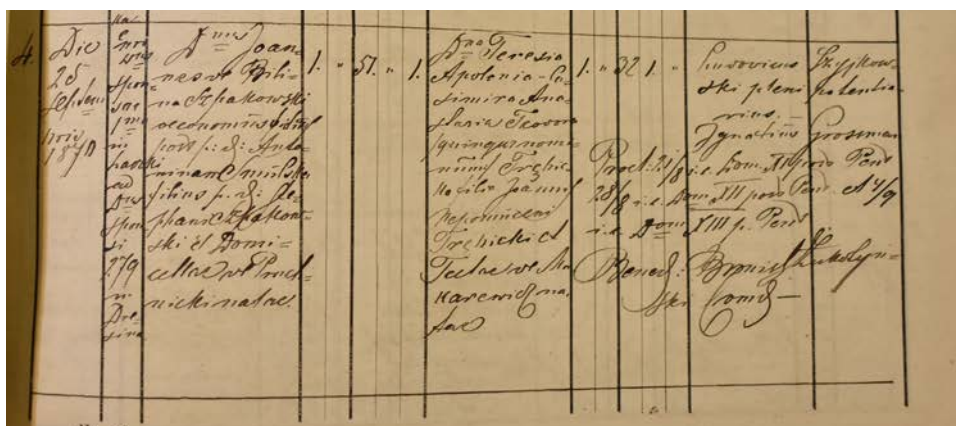 4.
Die
25
Septem
bris
1870
in
ad
spon
si
279
in
Dnus Joan=
nes de Bili=
na Szpakowski
oeconomus viduus
post p: d: Anto=
ninam Smulska
filius p. d: Ste=
phani Szpakow=
ski et Domi=
cellae de Proch=
nicki natae
1. " 51. " 1.
Dna Teresia
Apolonia Ca=
simira Ana=
stasia Teodora
(quinque nomi=
num) Trębic=
ka filia Joannis
Nepomuceni
Trębicki et
Teclae de Ma=
karewicz na=
tae
1. " 32 1. "
Ludovicus Szypkow=
ski pleni potentia=
rius
Ignatius Grossman
Procl: 21/8 i. e. Dom. XI post Pent
28/8 i. e. Dom. XII post Pent. et 4/9
i. e. Dom XIII p. Pent
Bened:
ski Comd —